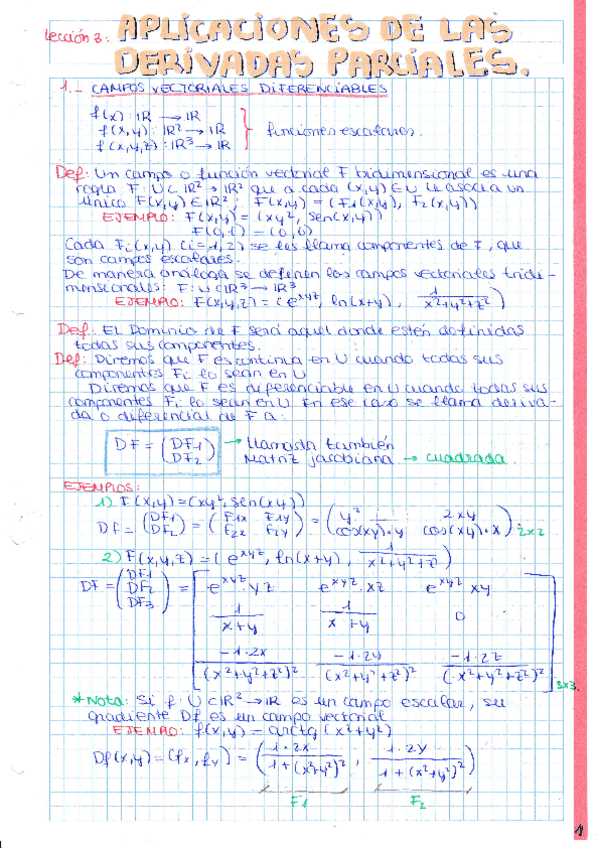 Lección 3: APLICACIONES DE LAS
DERIVADAS PARCIALES.
1.- CAMPOS VECTORIALES DIFERENCIABLES
f(x): IR → IR
f(x,y): IR² → IR
f(x,y,z): IR³ → IR
funciones escalares.
Def: Un campo o función vectorial F bidimensional es una
regla F: U⊂IR² → IR² que a cada (x,y)∈U le asocia un
único F(x,y)∈IR²; F(x,y) = (F₁(x,y), F₂(x,y))
EJEMPLO: F(x,y) = (xy², sen(xy))
F(0,1) = (0,0)
Cada Fi(x,y) (i=1,2) se les llama componentes de F, que
son campos escalares.
De manera análoga se definen los campos vectoriales tridi-
mensionales: F: U⊂IR³ → IR³
EJEMPLO: F(x,y,z) = (e^xyz, ln(x+y), 1/(x²+y²+z²))
Def: El Dominio de F será aquel donde estén definidas
todas sus componentes.
Def: Diremos que F es continua en U cuando todas sus
componentes Fi lo sean en U
Diremos que F es diferenciable en U cuando todas sus
componentes Fi lo sean en U. En ese caso se llama deriva-
da o diferencial de F a:
DF = (DF1 DF2) → llamada también
Matriz jacobiana → cuadrada.
EJEMPLOS:
1) F(x,y) = (xy², sen(xy))
DF = (DF1 DF2) = (F1x F1y F2x F2y) = (y² 2xy cos(xy)·y cos(xy)·x) 2x2
2) F(x,y,z) = (e^xyz, ln(x+y), 1/(x²+y²+z²))
DF = (DF1 DF2 DF3) = [e^xyz·yz e^xyz·xz e^xyz·xy
1/(x+y) 1/(x+y) 0
-1·2x/(x²+y²+z²)² -1·2y/(x²+y²+z²)² -1·2z/(x²+y²+z²)²] 3x3
*Nota: Si f: U⊂IR² → IR es un campo escalar, su
gradiente Df es un campo vectorial
EJEMPLO: f(x,y) = arctg(x²+y²)
Df(x,y) = (fx, fy) = (1·2x/(1+(x²+y²)²), 1·2y/(1+(x²+y²)²))
F1 F2
1